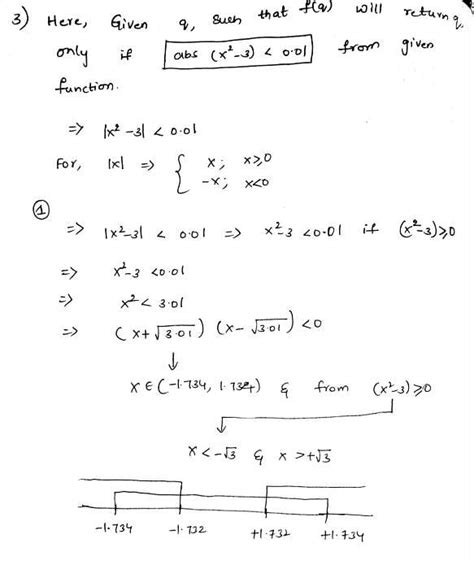 3) Here, Given q, such that f(q) will return q
only if abs (x²-3) < 0.01 from given
function.
=> |x²-3| < 0.01
For, |x| => { x; x≥0
-x; x<0
①
=> |x²-3| < 0.01 => x²-3 <0.01 if (x²-3)≥0
=> x²-3 <0.01
=> x² < 3.01
=> (x+√3.01) (x-√3.01) <0
↓
x ∈ (-1.734, 1.734) & from (x²-3)≥0
x < -√3 & x > +√3
-1.734 -1.732 +1.732 +1.734